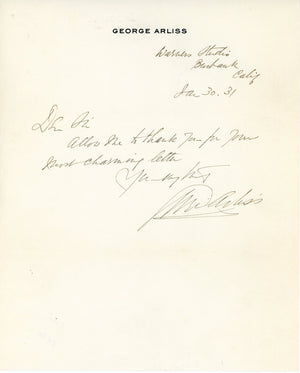 GEORGE ARLISS
Warners Studio
Burbank
Calif
Jan 30. 31
Dear Sir
Allow me to thank you for your
most charming letter
Yours very truly
George Arliss